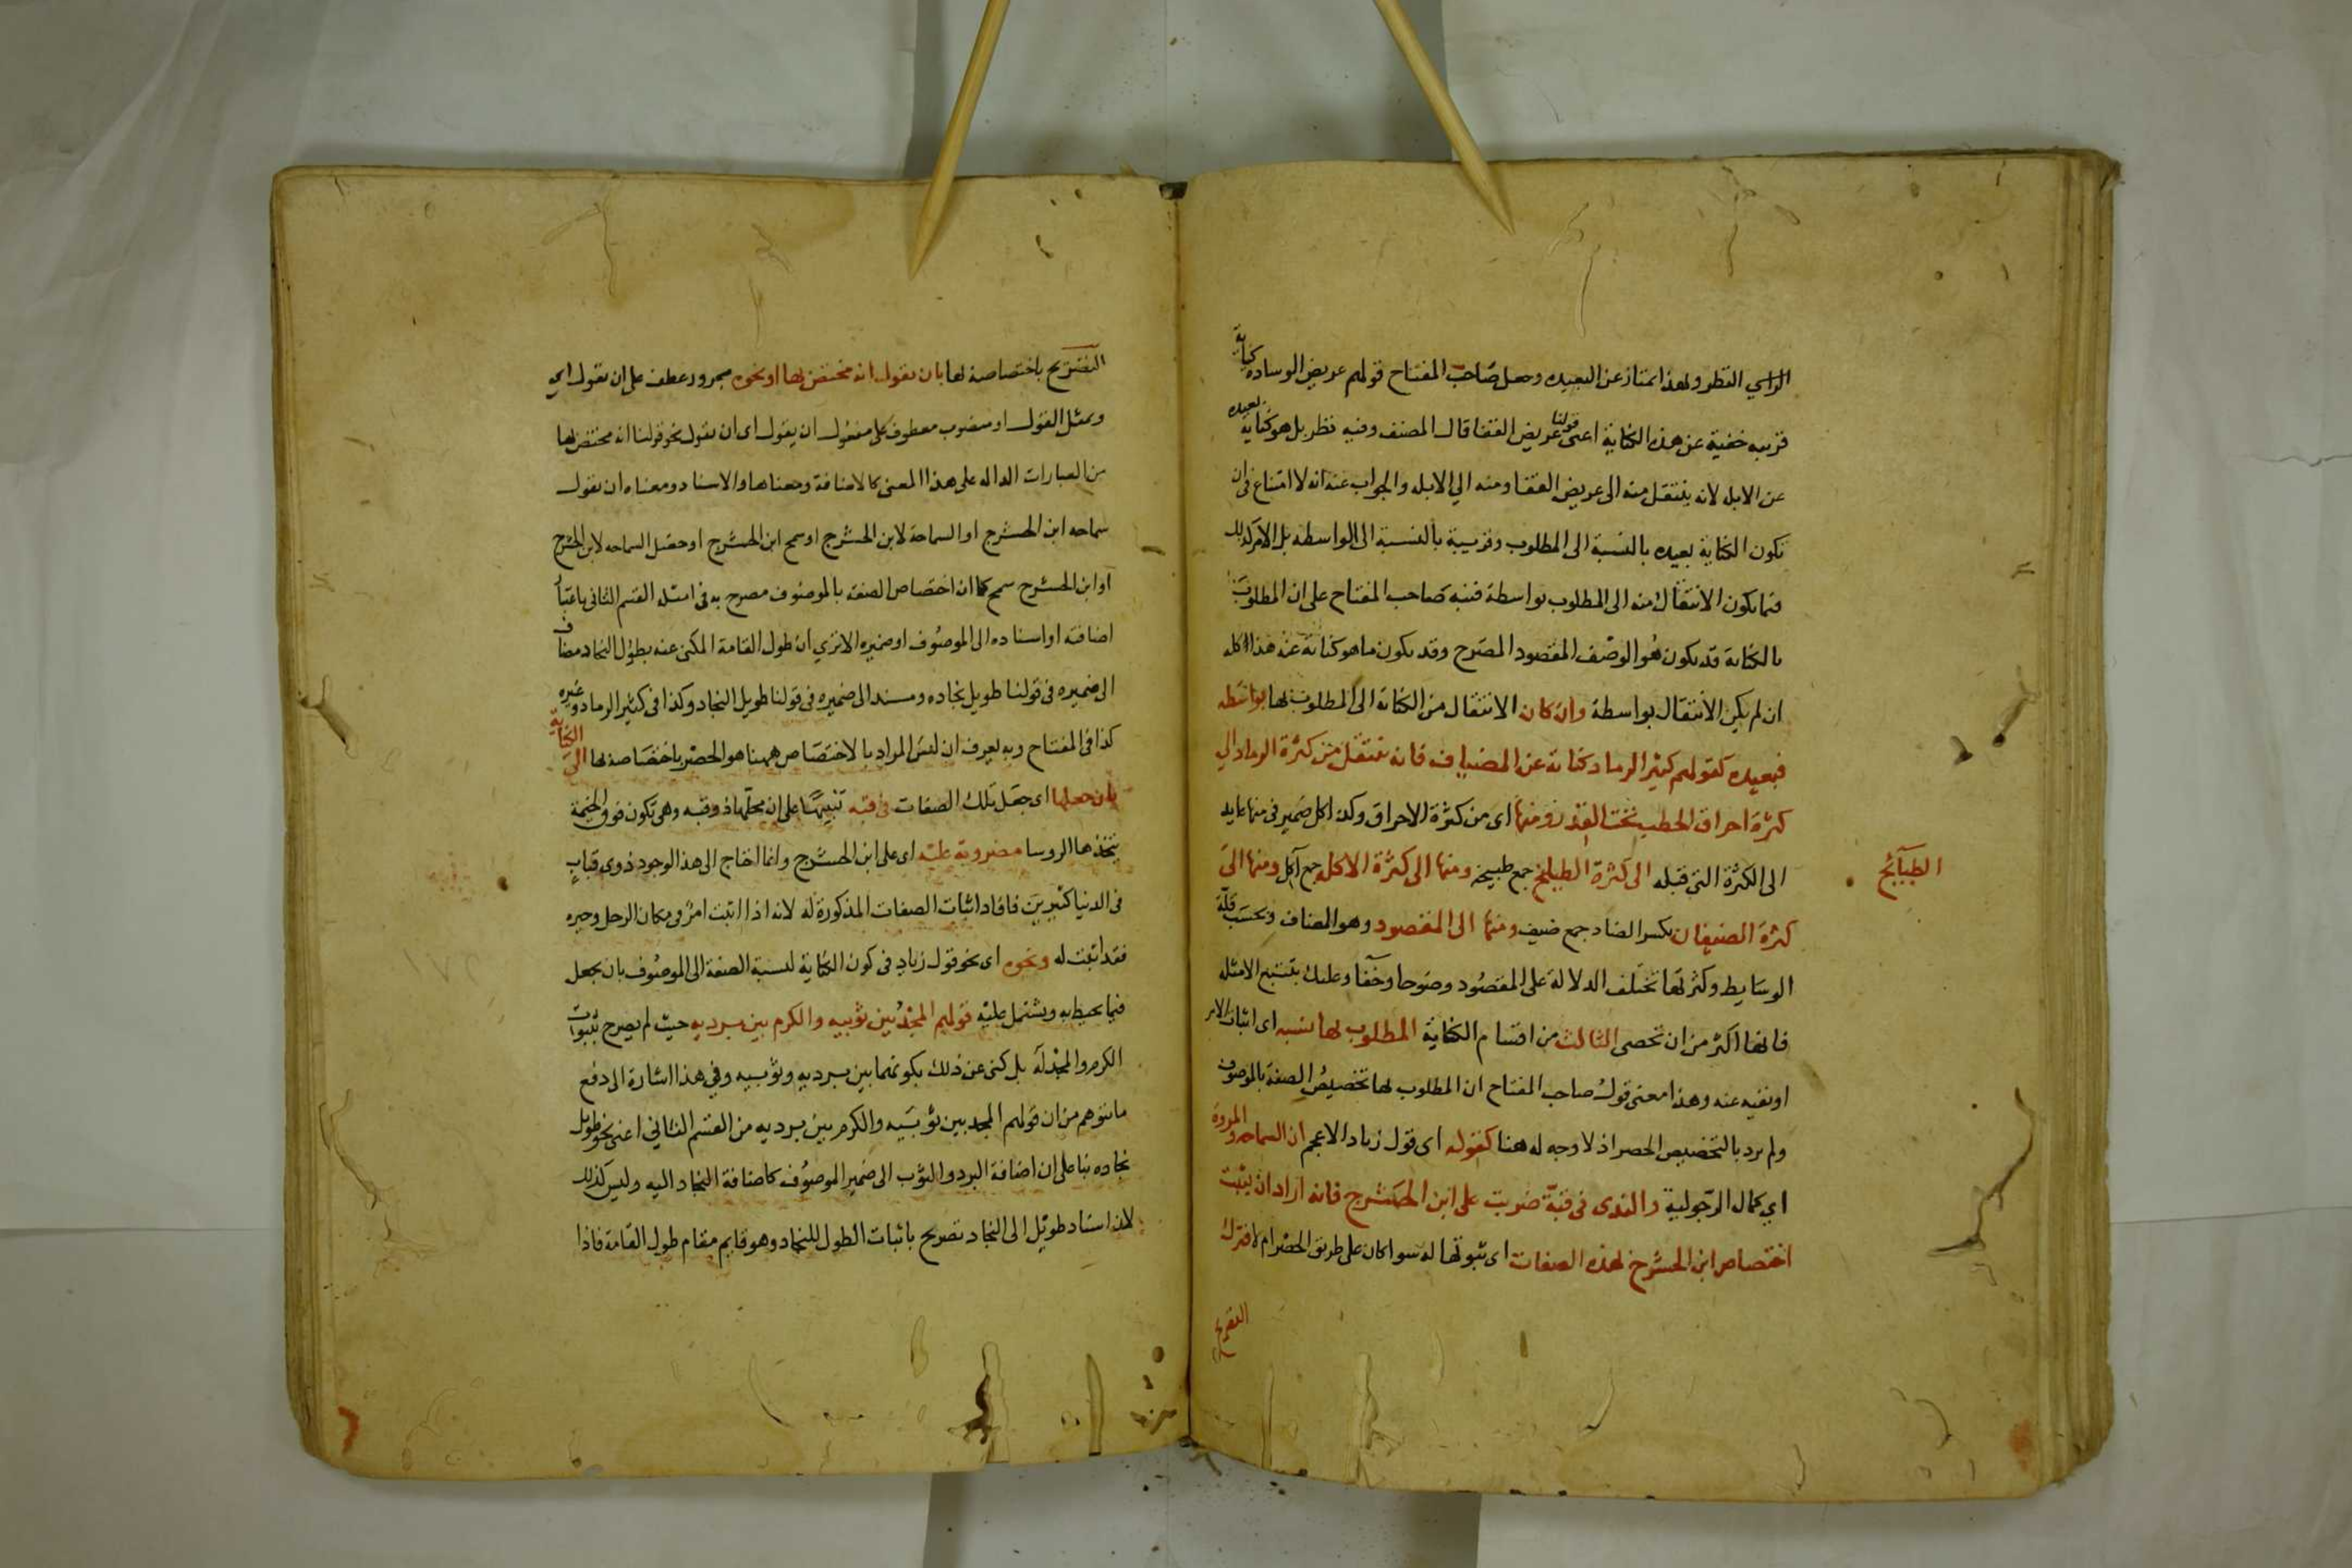 الراي النظر ولهذا امتاز عن البعيده وجعل صاحب المفتاح قولهم عريض الوساده كناية
قريبه خفية عن هذه الكناية اعنى قولنا عريض القفا قال المصنف وفيه نظر بل هو كناية بعيده
عن الابله لانه ينتقل منه الى عريض القفا ومنه الي الابله والجواب عنه انه لا امتناع فى ان
تكون الكناية بعيده بالنسبة الى المطلوب وقريبة بالنسبة الى الواسطه بل الامر كذلك
فيما يكون الانتقال منه الى المطلوب بواسطة فنبه صاحب المفتاح على ان المطلوب
بالكناية قد يكون هو الوصف المقصود المصرح وقد يكون ما هو كناية عنه هذا كله
ان لم يكن الانتقال بواسطة وان كان الانتقال من الكناية الى المطلوب بها بواسطه
فبعيده كقولهم كثير الرماد كناية عن المضياف فانه ينتقل من كثرة الرماد الي
كثرة احراق الحطب تحت القدر ومنها اى من كثرة الاحراق وكذا كل ضمير فى منها عايد
الى الكثرة التى قبله الى كثرة الطبايخ جمع طبيخه ومنها الى كثرة الاكله جمع آكل ومنها الى
الطبآئخ
كثرة الضيفان بكسر الضاد جمع ضيف ومنها الى المقصود وهو المضاف وبحسب قلة
الوسايط وكثرتها تختلف الدلالة على المقصود وضوحا وخفا وعليك بتتبع الامثله
فانها اكثر من ان تحصى الثالث من اقسام الكناية المطلوب بها نسبه اى اثبات الامر
او نفيه عنه وهذا معنى قول صاحب المفتاح ان المطلوب بها تخصيص الصفة بالموصوف
ولم يرد بالتخصيص الحصر اذ لا وجه له هنا كقوله اى قول زياد الاعجم ان السماحه والمروة
اي كمال الرجولية والندى فى قبة ضربت على ابن الحشرج فانه اراد ان يثبت
اختصاص ابن الحشرج بهذه الصفات اى ثبوتها له سوا كان على طريق الحصر ام لا فترك
التصريح
التصريح باختصاصه بها بان يقول انه مختص بها او نحوه مجرور عطف على ان يقول اى
وبمثل القول او منصوب معطوف على مفعول ان يقول اى ان يقول نحو قولنا انه مختص بها
من العبارات الداله على هذا المعنى كالاضافة ومعناها والاسناد ومعناه ان يقول
سماحه ابن الحشرج او السماحة لابن الحشرج او سمح ابن الحشرج او حصل السماحه لابن الحشرج
او ابن الحشرج سمح كما ان اختصاص الصفة بالموصوف مصرح به فى امثله القسم الثانى باعتبار
اضافته او اسناده الى الموصوف او ضميره الا ترى ان طول القامة المكنى عنه بطول النجاد مضاف
الى ضميره فى قولنا طويل نجاده ومسند الى ضميره فى قولنا طويل النجاد وكذا فى كثير الرماد وغيره
كذا فى المفتاح وبه يعرف ان ليس المراد بالاختصاص ههنا هو الحصر باختصاصه بها الى الكناية
بان جعلها اى جعل تلك الصفات فى قبه تنبيها على ان محلها ذو قبه وهى تكون فوق الخيمة
يتخذها الروسا مضروبة عليه اى على ابن الحشرج وانما احتاج الى هذا لوجود ذوى قباب
فى الدنيا كثيرين فافاد اثبات الصفات المذكورة له لانه اذا اثبت امر فى مكان الرجل وحيزه
فقد اثبت له ونحوه اى نحو قول زياد فى كون الكناية لنسبة الصفة الى الموصوف بان يجعل
فيما يحيط به ويشتمل عليه قولهم المجد بين ثوبيه والكرم بين برديه حيث لم يصرح بثبوت
الكرم والمجد له بل كنى عن ذلك بكونهما بين برديه وثوبيه وفي هذا اشارة الى دفع
ما يتوهم من ان قولهم المجد بين ثوبيه والكرم بين برديه من القسم الثاني اعنى نحو طويل
نجاده بنا على ان اضافة البرد والثوب الى ضمير الموصوف كاضافة النجاد اليه وليس كذلك
لان اسناد طويل الى النجاد تصريح باثبات الطول للنجاد وهو قايم مقام طول القامة فاذا